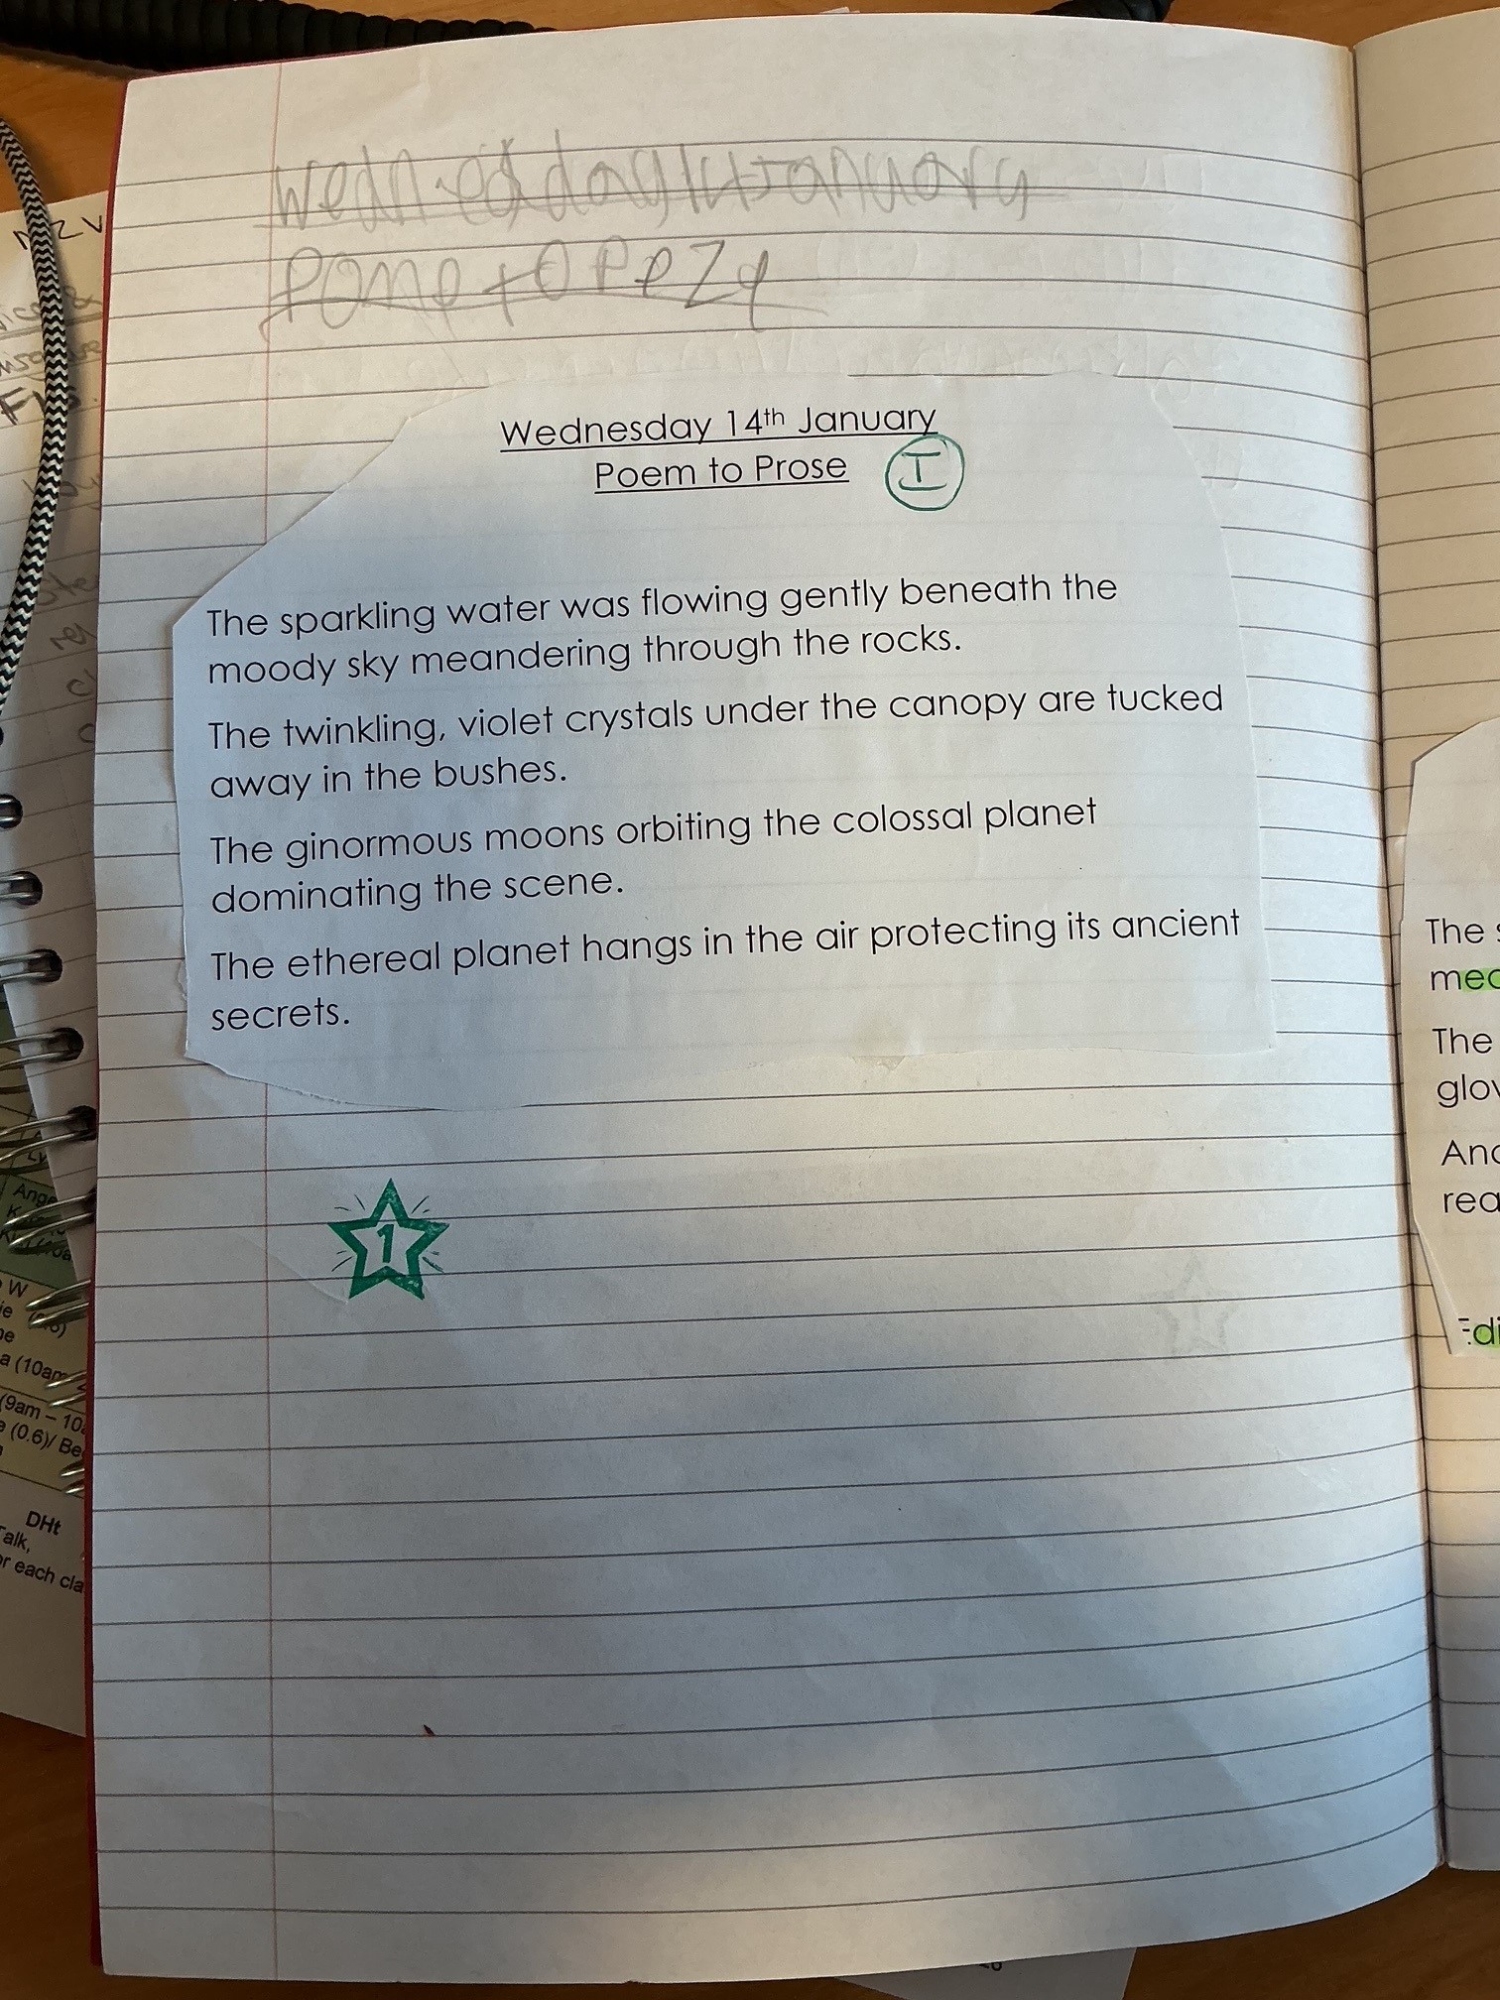 Wednesday 14 January
Pome to Pezy
Wednesday 14th January
Poem to Prose
I
The sparkling water was flowing gently beneath the
moody sky meandering through the rocks.
The twinkling, violet crystals under the canopy are tucked
away in the bushes.
The ginormous moons orbiting the colossal planet
dominating the scene.
The ethereal planet hangs in the air protecting its ancient
secrets.
1
The
The
DHt
Talk,
each cla
a (10am
(9am – 10
(0.6)/ Be